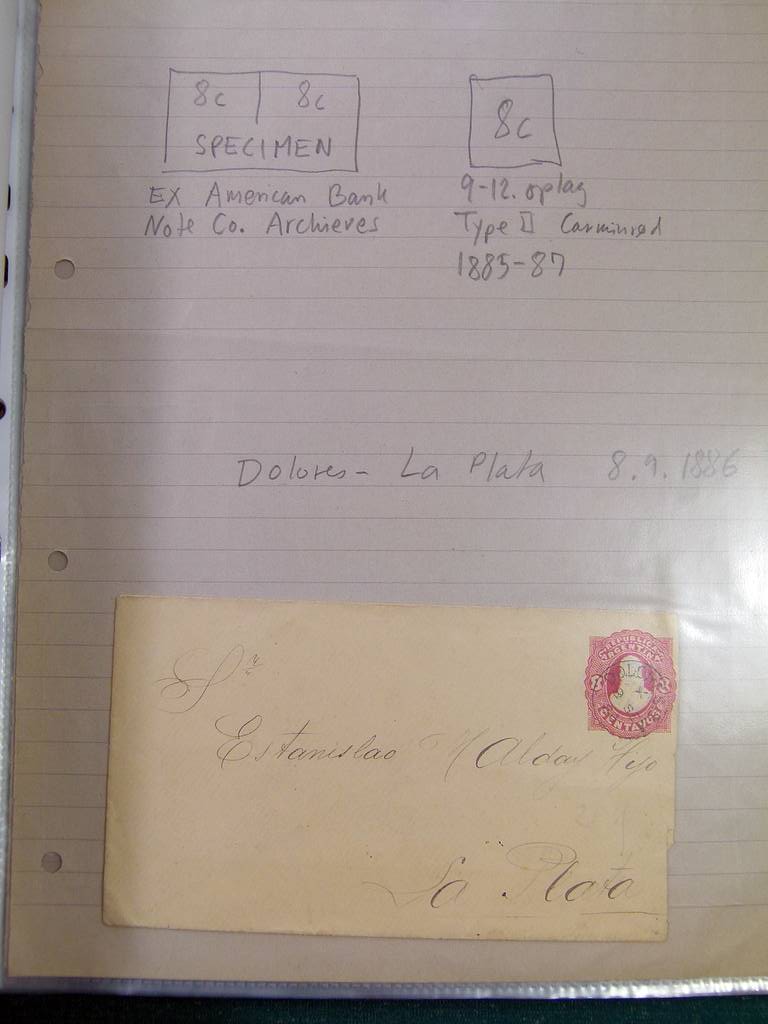 8c 8c
SPECIMEN
EX American Bank
Note Co. Archieves
8c
9-12. oplag
Type II Carminred
1885-87
Dolores - La Plata 8.9.1886
REPUBLICA
ARGENTINA
8 8
CENTAVOS
Sr
Estanislao Aldao Hijo
La Plata